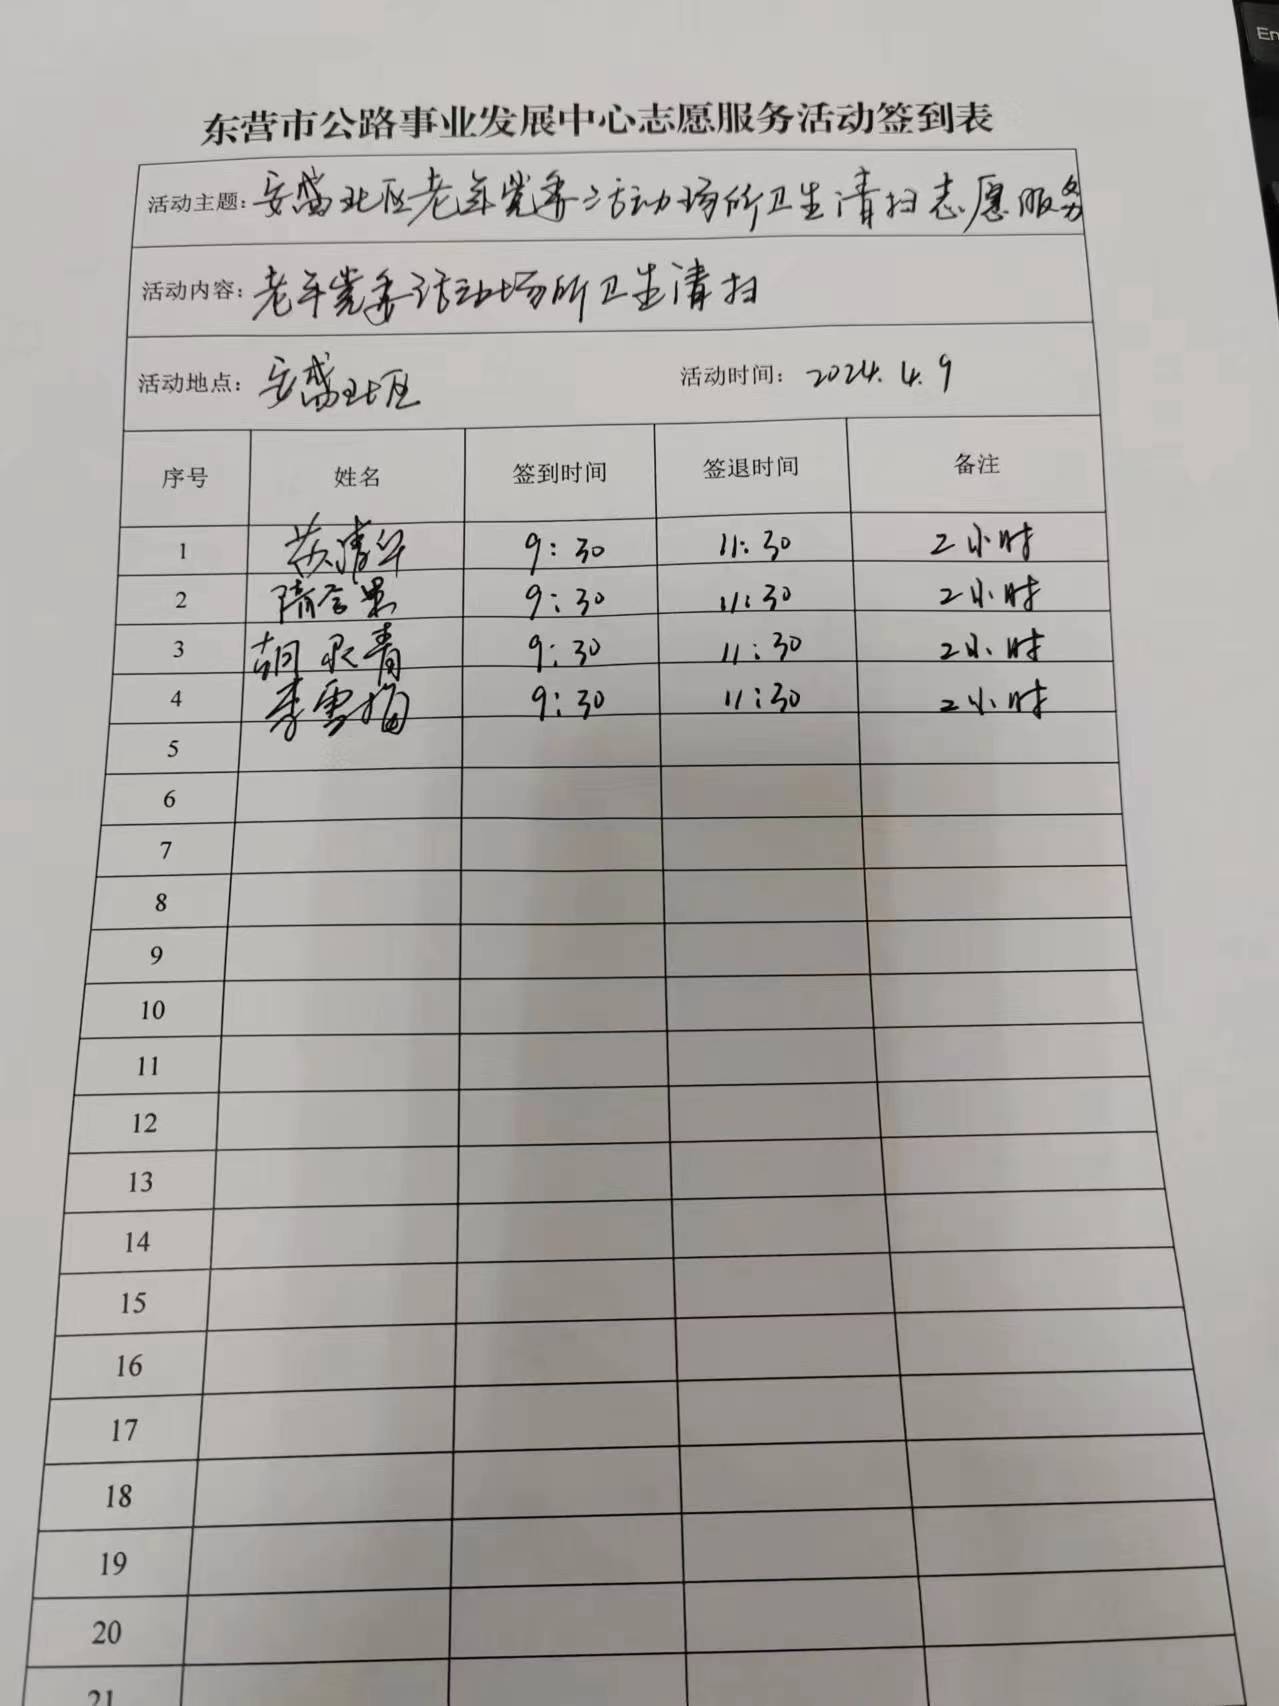 En
东营市公路事业发展中心志愿服务活动签到表
活动主题: 安盛社区老年党委活动场所卫生清扫志愿服务
活动内容: 老年党委活动场所卫生清扫
活动地点: 安盛社区 活动时间: 2024.4.9
序号 姓名 签到时间 签退时间 备注
1 清华 9:30 11:30 2小时
2 隋 9:30 11:30 2小时
3 胡 青 9:30 11:30 2小时
4 李雪梅 9:30 11:30 2小时
5
6
7
8
9
10
11
12
13
14
15
16
17
18
19
20
21